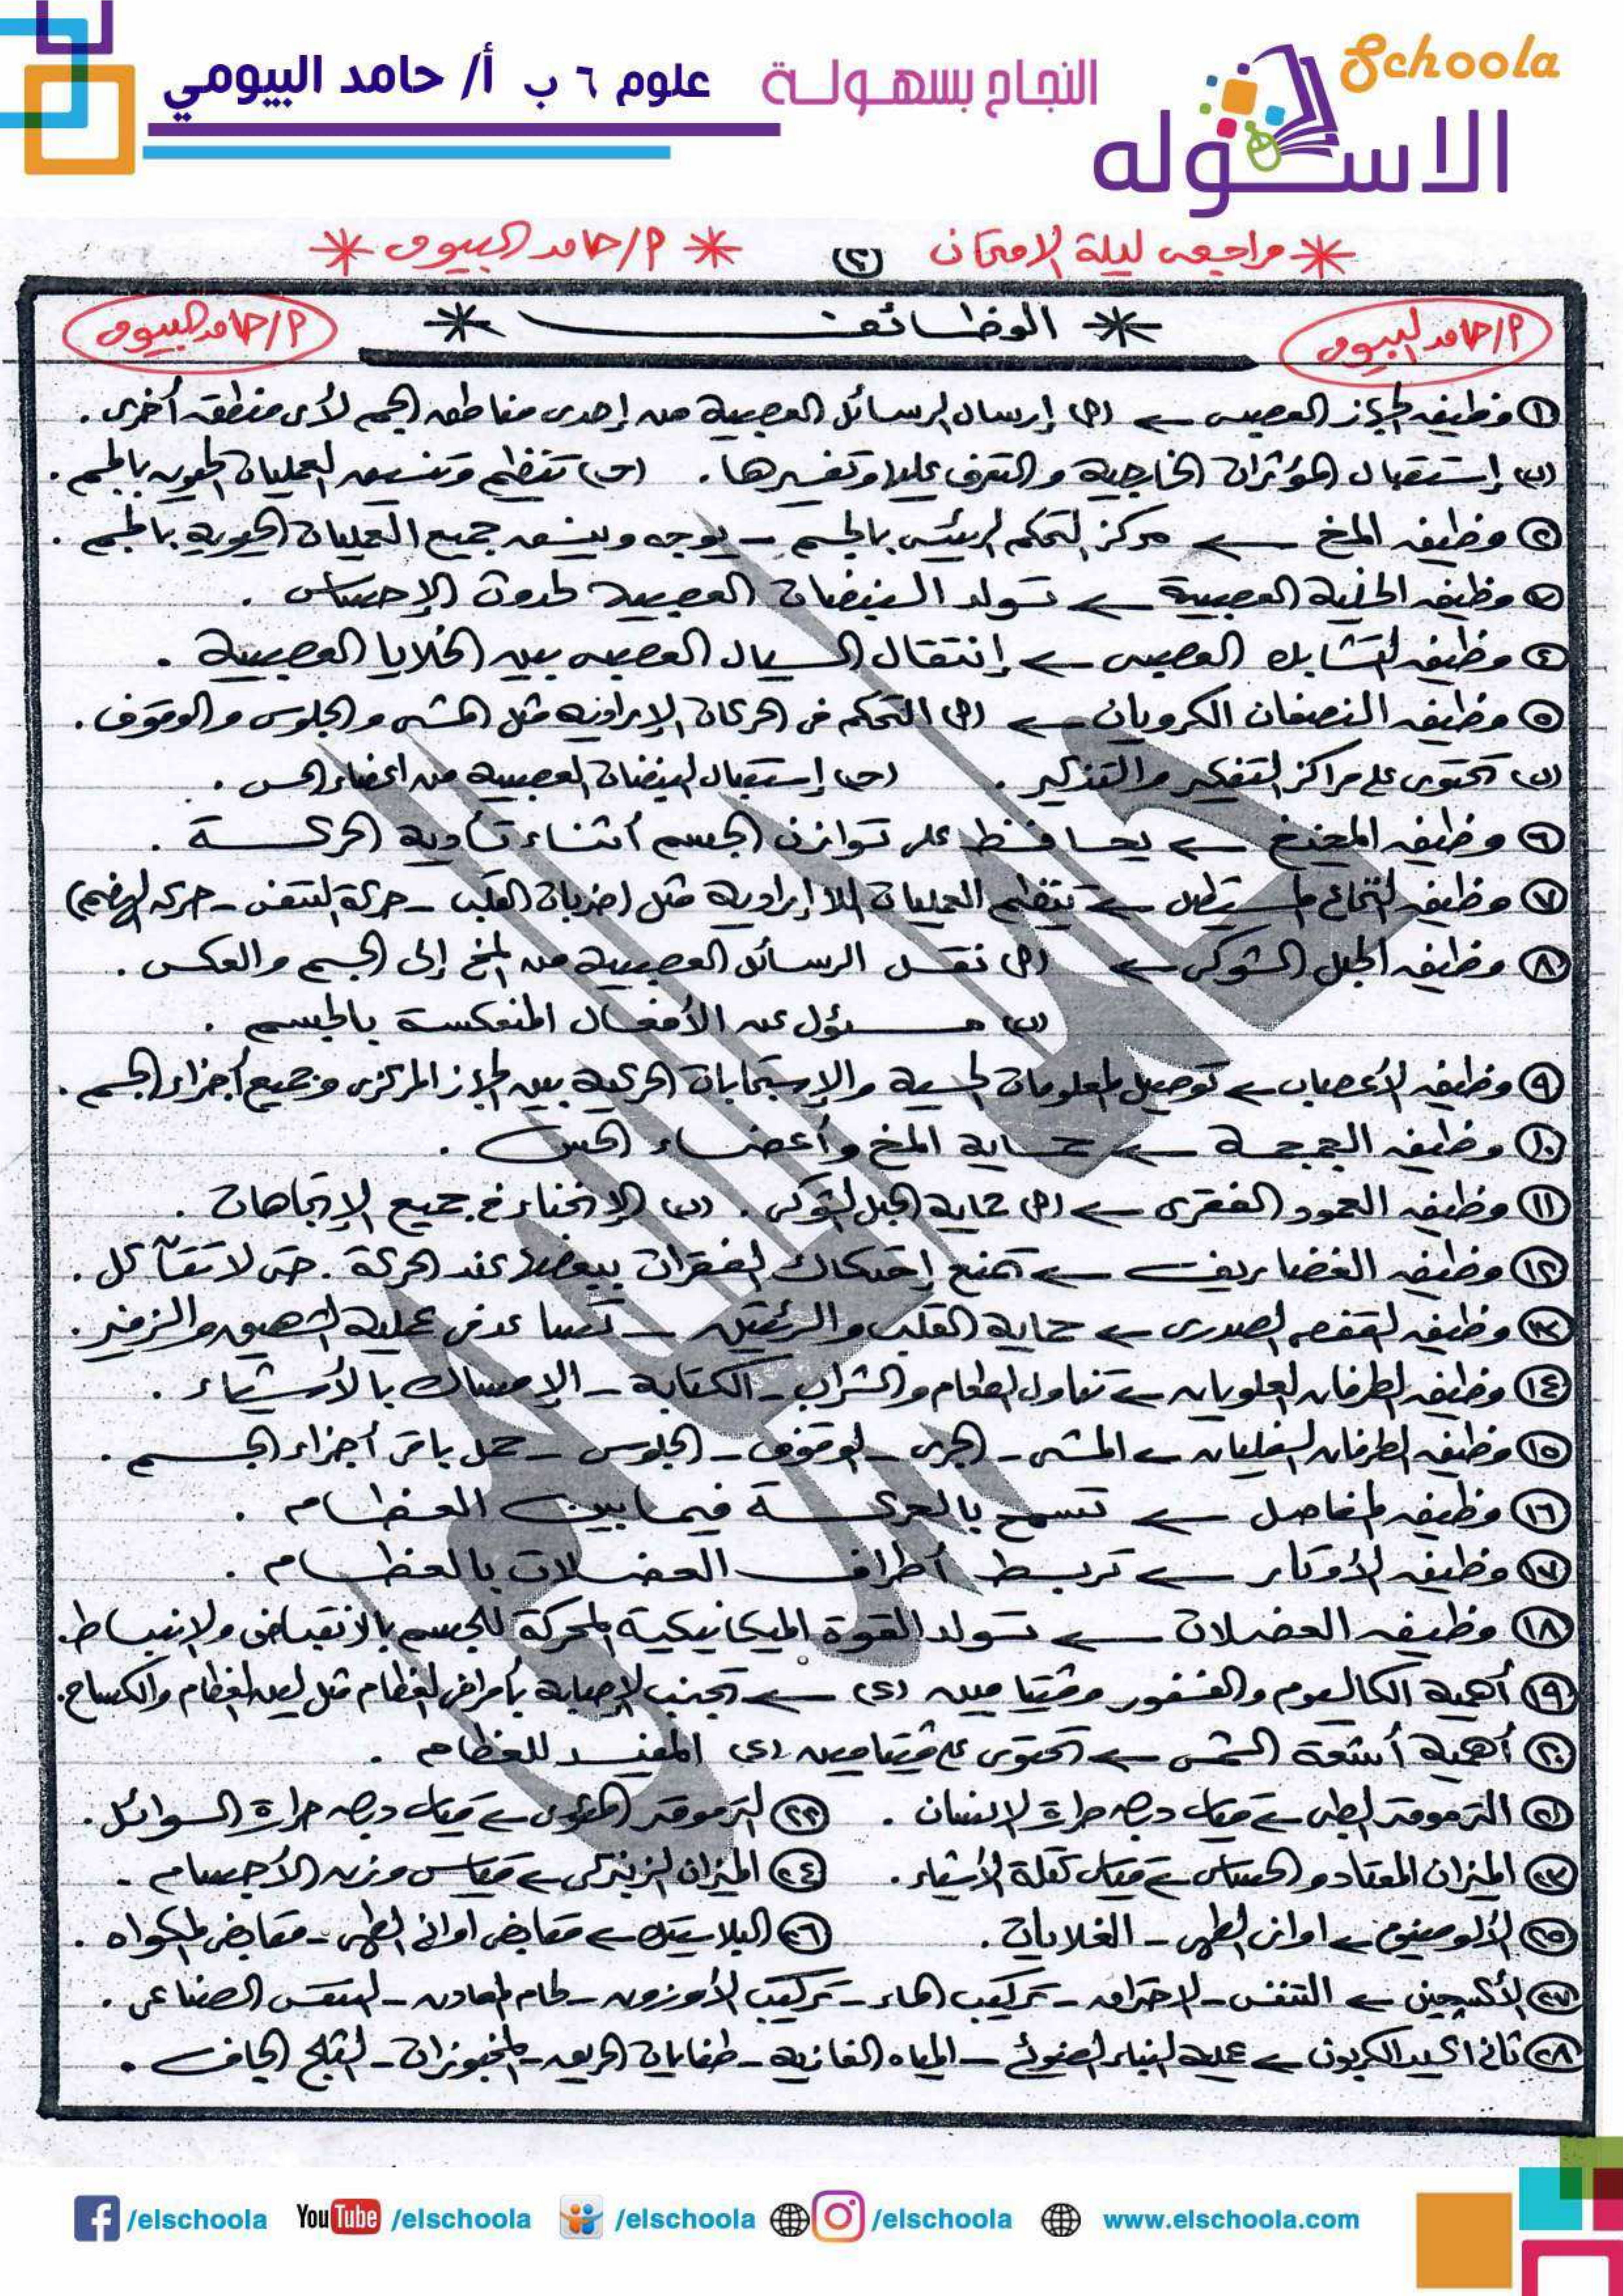 Schoola
الاسكوله
النجاح بسهولة
علوم ٦ ب أ/ حامد البيومي
* مراجعة ليلة الامتحان (٢) * م/ حامد البيومى *
م/ حامد البيومى * الوظائف * م/ حامد البيومى
① وظيفة الجهاز العصبى ← (أ) إرسال الرسائل العصبية من إحدى مناطق الجسم لأى منطقة أخرى.
(ب) إستقبال المؤثرات الخارجية والتعرف عليها وتفسيرها. (جـ) تنظيم وتنسيق العمليات الحيوية بالجسم.
② وظيفة المخ ← مركز التحكم الرئيسى بالجسم - يوجه وينسق جميع العمليات الحيوية بالجسم.
③ وظيفة الخلية العصبية ← تولد النبضات العصبية لحدوث الإحساس.
④ وظيفة التشابك العصبى ← إنتقال السيال العصبى بين الخلايا العصبية.
⑤ وظيفة النصفان الكرويان ← (أ) التحكم فى الحركات الإرادية مثل المشى والجلوس والوقوف.
(ب) تحتوى على مراكز التفكير والتذكير. (جـ) إستقبال النبضات العصبية من أعضاء الحس.
⑥ وظيفة المخيخ ← يحافظ على توازن الجسم أثناء تأدية الحركة.
⑦ وظيفة النخاع المستطيل ← تنظيم العمليات اللاإرادية مثل (ضربات القلب - حركة التنفس - حركة الهضم)
⑧ وظيفة الحبل الشوكى ← (أ) نقل الرسائل العصبية من المخ إلى الجسم والعكس.
(ب) مسئول عن الأفعال المنعكسة بالجسم.
⑨ وظيفة الأعصاب ← توصيل المعلومات الحسية والإستجابات الحركية بين الجهاز المركزى وجميع أجزاء الجسم.
⑩ وظيفة الجمجمة ← حماية المخ وأعضاء الحس.
⑪ وظيفة العمود الفقرى ← (أ) حماية الحبل الشوكى. (ب) الإنحناء فى جميع الإتجاهات.
⑫ وظيفة الغضاريف ← تمنع إحتكاك الفقرات ببعضها عند الحركة. حتى لا تتآكل.
⑬ وظيفة القفص الصدرى ← حماية القلب والرئتين - تساعد فى عملية الشهيق والزفير.
⑭ وظيفة الطرفان العلويان ← تناول الطعام والشراب - الكتابة - الإمساك بالأشياء.
⑮ وظيفة الطرفان السفليان ← المشى - الجرى - الوقوف - الجلوس - حمل باقى أجزاء الجسم.
⑯ وظيفة المفاصل ← تسمح بالحركة فيما بين العظام.
⑰ وظيفة الأوتار ← تربط أطراف العضلات بالعظام.
⑱ وظيفة العضلات ← تولد القوة الميكانيكية المحركة للجسم بالانقباض والإنبساط.
⑲ أهمية الكالسيوم والفسفور وفيتامين (د) ← تجنب الإصابة بأمراض العظام مثل لين العظام والكساح.
⑳ أهمية أشعة الشمس ← تحتوى على فيتامين (د) المفيد للعظام.
㉑ الترمومتر الطبى ← قياس درجة حرارة الإنسان. ㉒ الترمومتر المئوى ← قياس درجة حرارة السوائل.
㉓ الميزان المعتاد والحساس ← قياس كتلة الأشياء. ㉔ الميزان الزنبركى ← قياس وزن الأجسام.
㉕ الألومنيوم ← اوانى الطهى - الغلايات. ㉖ البلاستيك ← مقابض اوانى الطهى - مقابض المكواه.
㉗ الأكسجين ← التنفس - الاحتراق - تركيب الماء - تركيب الأوزون - لحام المعادن - التنفس الصناعى.
㉘ ثانى اكسيد الكربون ← عملية البناء الضوئى - المياه الغازية - طفايات الحريق - المخبوزات - الثلج الجاف.
/elschoola YouTube /elschoola /elschoola /elschoola www.elschoola.com